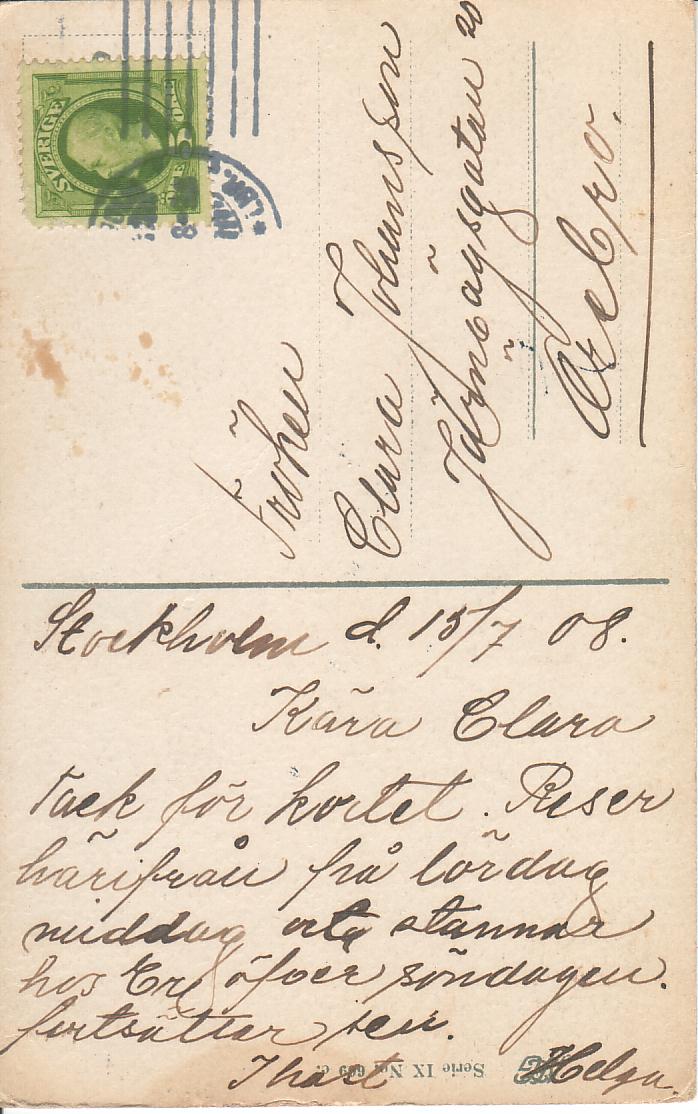 SVERIGE
Fröken
Clara Johansson
Järnvägsgatan 20
Örebro.
Stockholm d. 15/7 08.
Kära Clara
Tack för kortet. Reser
härifrån på lördag
middag och stannar
hos Er öfver söndagen.
fortsätter sen.
I hast Helga.
Serie IX No. 669 c.